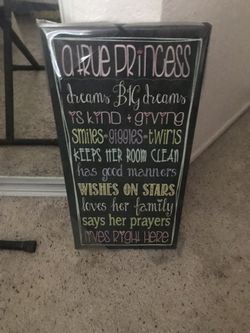 a true princess
dreams BIG dreams
is kind + giving
smiles giggles twirls
KEEPS HER ROOM CLEAN
has good manners
WISHES ON STARS
loves her family
says her prayers
LIVES RIGHT HERE